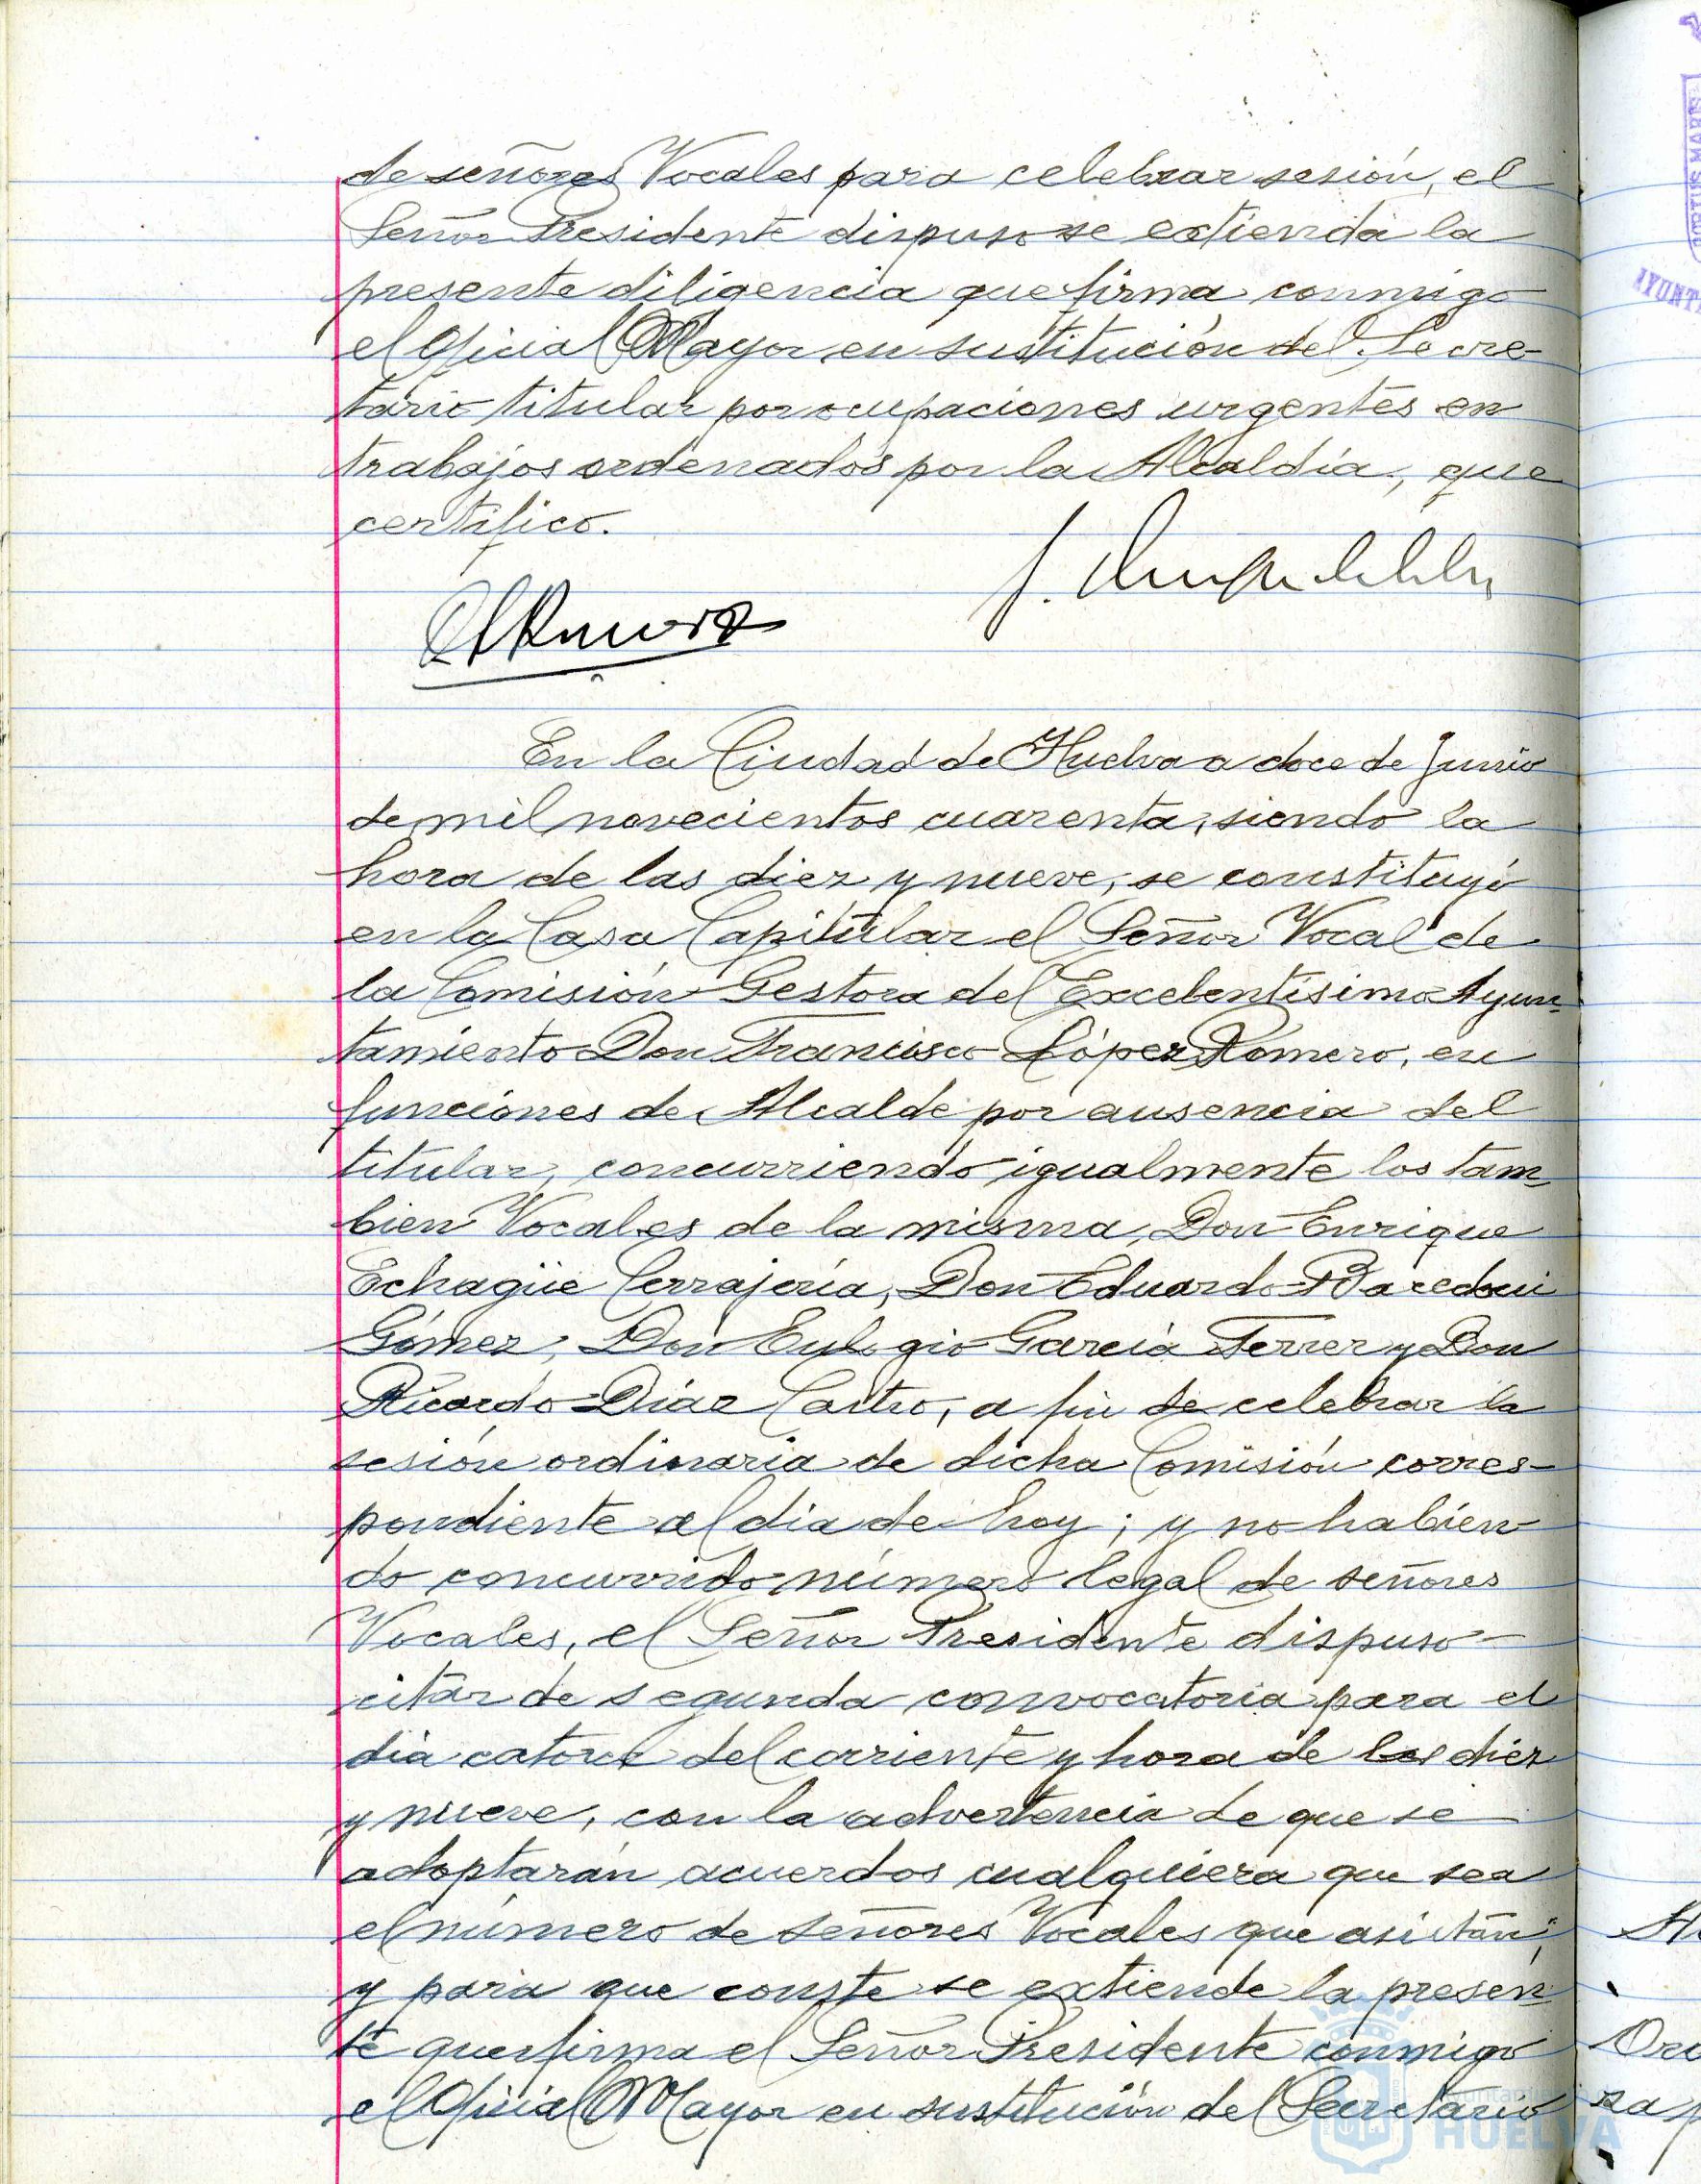 de señores Vocales para celebrar sesión, el
Señor Presidente dispuso se extienda la
presente diligencia que firma conmigo
el Oficial Mayor en sustitución del Secre-
tario titular por ocupaciones urgentes en
trabajos ordenados por la Alcaldía, que
certifico.
En la Ciudad de Huelva a doce de Junio
de mil novecientos cuarenta, siendo la
hora de las diez y nueve, se constituyó
en la Casa Capitular el Señor Vocal de
la Comisión Gestora del Excelentísimo Ayun-
tamiento Don Francisco López Romero, en
funciones de Alcalde por ausencia del
titular, concurriendo igualmente los tam-
bien Vocales de la misma, Don Enrique
Echagüe Cerrajería, Don Eduardo
Gómez, Don Eulogio García Ferrer y Don
Ricardo Díaz Castro, a fin de celebrar la
sesión ordinaria de dicha Comisión corres-
pondiente al dia de hoy; y no habien-
do concurrido número legal de señores
Vocales, el Señor Presidente dispuso
citar de segunda convocatoria para el
dia catorce del corriente y hora de las diez
y nueve, con la advertencia de que se
adoptarán acuerdos cualquiera que sea
el número de señores Vocales que asistan;
y para que conste se extiende la presen-
te que firma el Señor Presidente conmigo
el Oficial Mayor en sustitución del Secretario
HUELVA